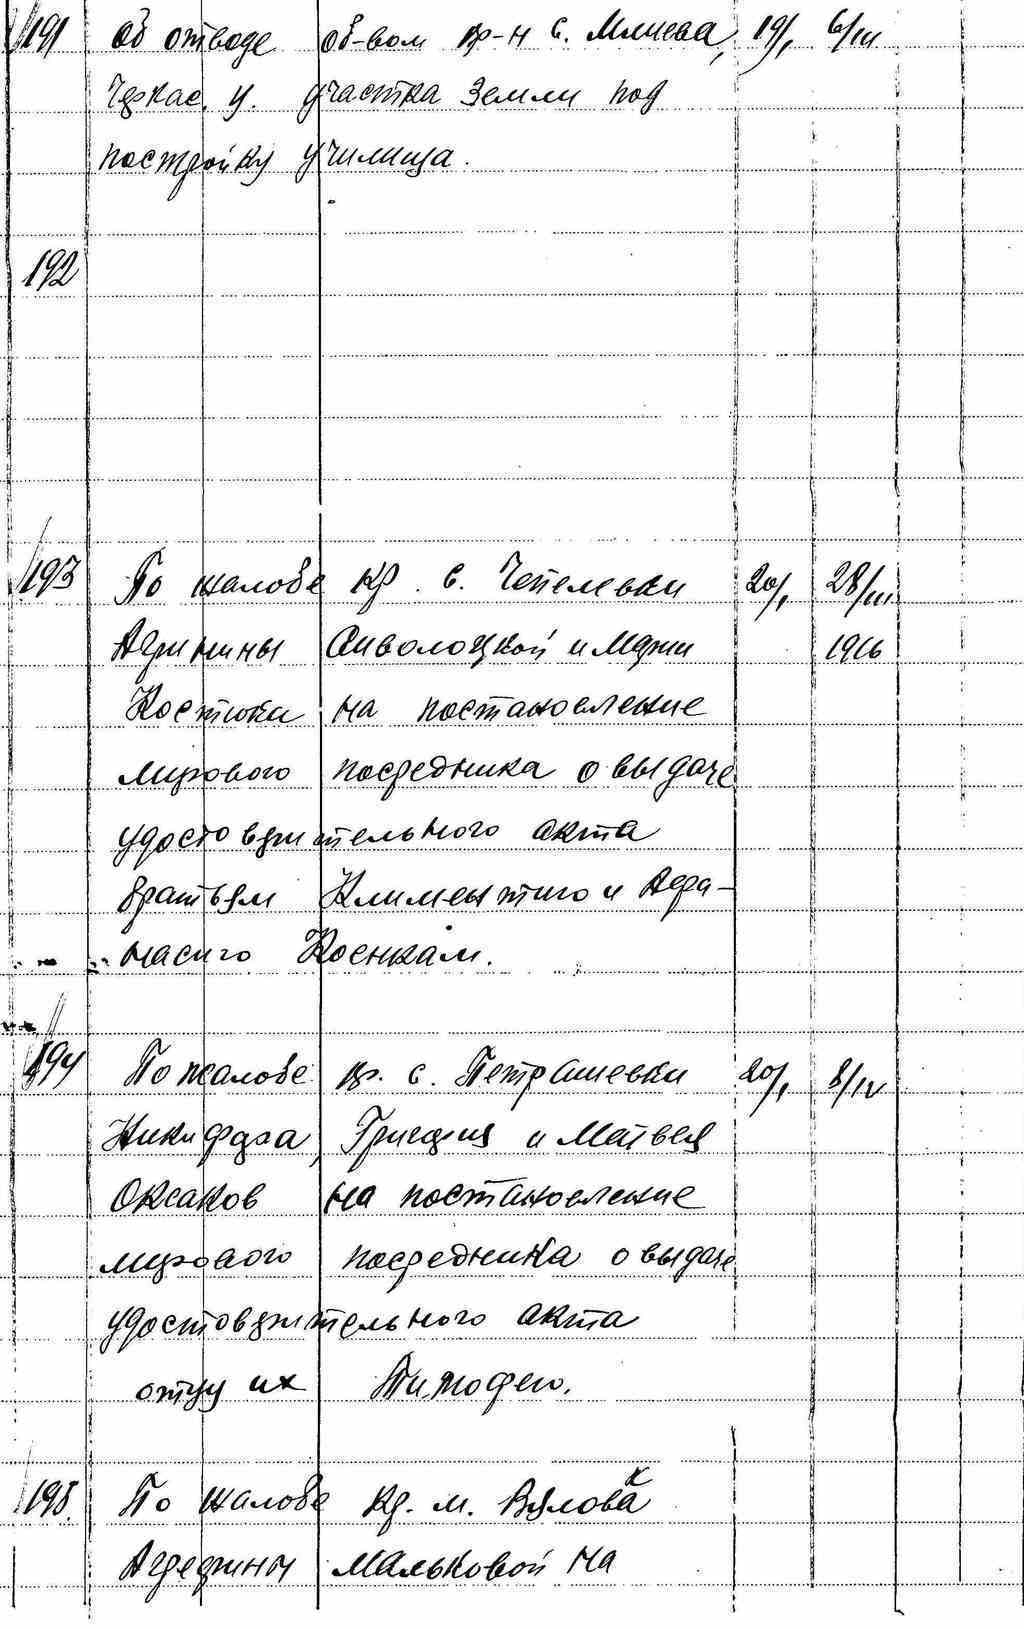 191 Об отводе об-вом кр-н с. Млиева, 19/I 6/III
Черкас. у. участка земли под
постройку училища.
192
193 По жалобе кр. с. Чепелевки 20/I 28/III
Агрипины Сиволоцкой и Марии 1916
Костюки на постановление
мирового посредника о выдаче
удостоверительного акта
братьям Климентию и Афа-
насию Косенкам.
194 По жалобе кр. с. Петрашевки 20/I 8/IV
Никифора, Григория и Матвея
Оксаков на постановление
мирового посредника о выдаче
удостоверительного акта
отцу их Тимофею.
195. По жалобе кр. м.
Мальковой на